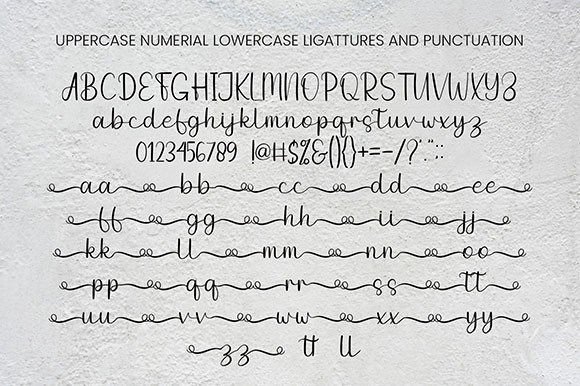 UPPERCASE NUMERIAL LOWERCASE LIGATTURES AND PUNCTUATION
ABCDEFGHIJKLMNOPQRSTUVWXYZ
abcdefghijklmnopqrstuvwxyz
0123456789 !@#$%&(){}+=-/?'":;
aa bb cc dd ee
ff gg hh ii jj
kk ll mm nn oo
pp qq rr ss tt
uu vv ww xx yy
zz tt ll